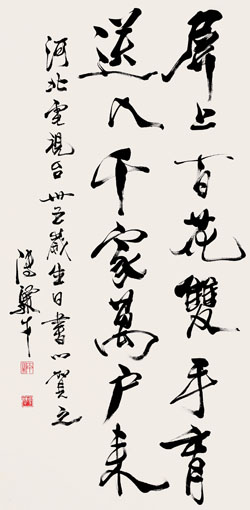 屏上百花雙手育
送入千家萬户来
河北電視台卅五歲生日書以賀之